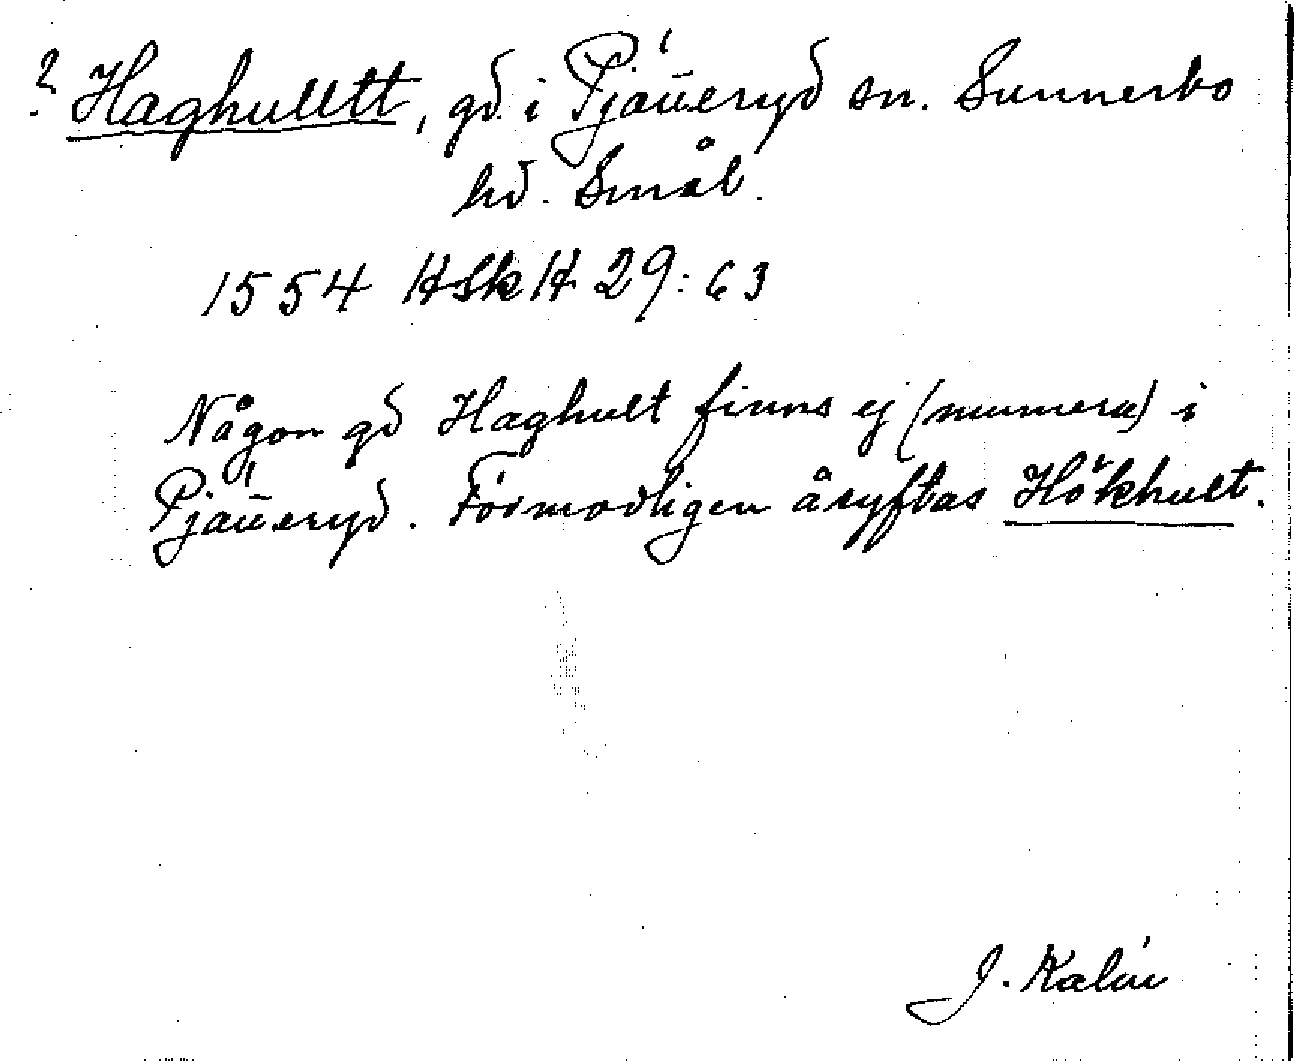 ? Haghulltt, gd i Pjätteryd sn. Sunnerbo
hd. Smål.
1554 HSkH 29:63
Någon gd Haghult finns ej (numera) i
Pjätteryd. Förmodligen åsyftas Hökhult.
J. Kalén